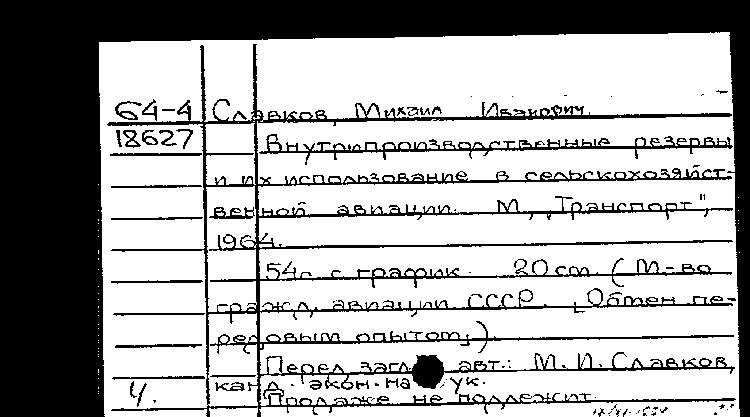 64-4 Славков, Михаил Иванович.
18627 Внутрипроизводственные резервы
и их использование в сельскохозяйст-
венной авиации. М., "Транспорт",
1964.
54с. с график. 20 см. (М-во
гражд. авиации СССР. [Обмен пе-
редовым опытом]).
Перед загл. авт.: М. И. Славков,
канд. экон. наук.
Ч. Продаже не подлежит.